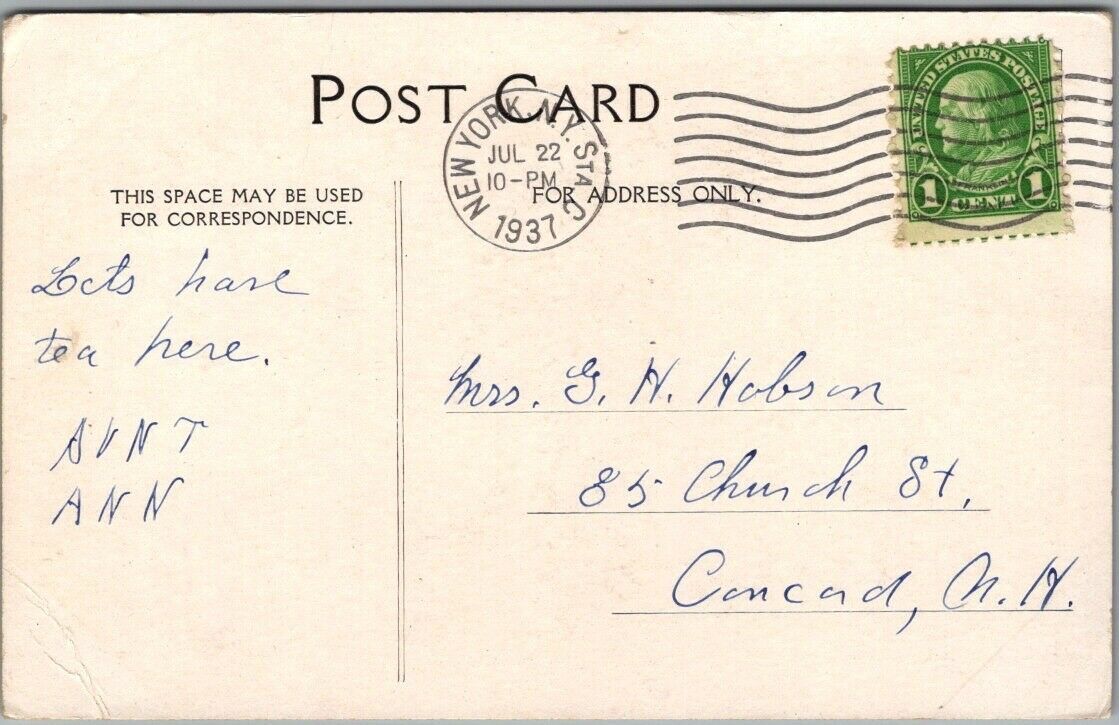 POST CARD
NEW YORK, N.Y. STA. C
JUL 22
10-PM
1937
UNITED STATES POSTAGE
FRANKLIN
1 CENT 1
THIS SPACE MAY BE USED
FOR CORRESPONDENCE.
FOR ADDRESS ONLY.
Lets have
tea here.
AUNT
ANN
Mrs. G. H. Hobson
85 Church St.
Concord, N.H.